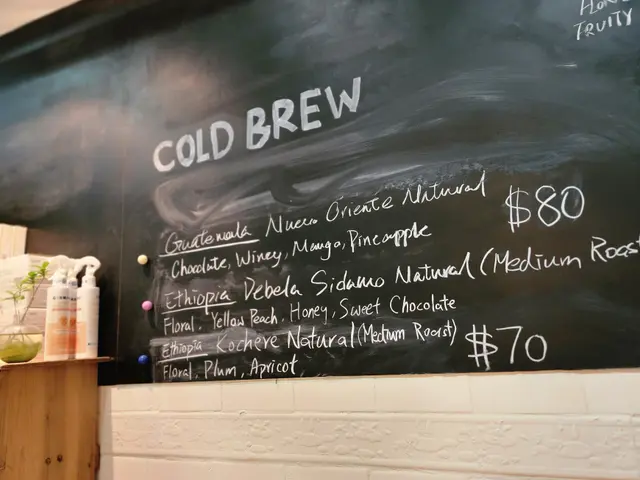 FRUITY
COLD BREW
Guatemala Nuevo Oriente Natural $80
Chocolate, Winey, Mango, Pineapple
Ethiopia Debela Sidamo Natural (Medium Roast
Floral, Yellow Peach, Honey, Sweet Chocolate
Ethiopia Kochere Natural (Medium Roast) $70
Floral, Plum, Apricot